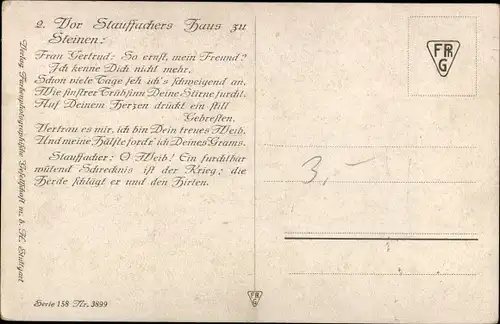 2. Vor Stauffachers Haus zu
Steinen:
Frau Gertrud: So ernst, mein Freund?
Ich kenne Dich nicht mehr.
Schon viele Tage seh ich's schweigend an,
Wie finstrer Trübsinn Deine Stirne furcht.
Auf Deinem Herzen drückt ein still
Gebresten.
Vertrau es mir, ich bin Dein treues Weib,
Und meine Hälfte fordr' ich Deines Grams.
Stauffacher: O Weib! Ein furchtbar
wütend Schrecknis ist der Krieg; die
Herde schlägt er und den Hirten.
Serie 158 Nr. 3899
Verlag Farbenphotographische Gesellschaft m. b. H. Stuttgart
FR
G
3,-
FR
G